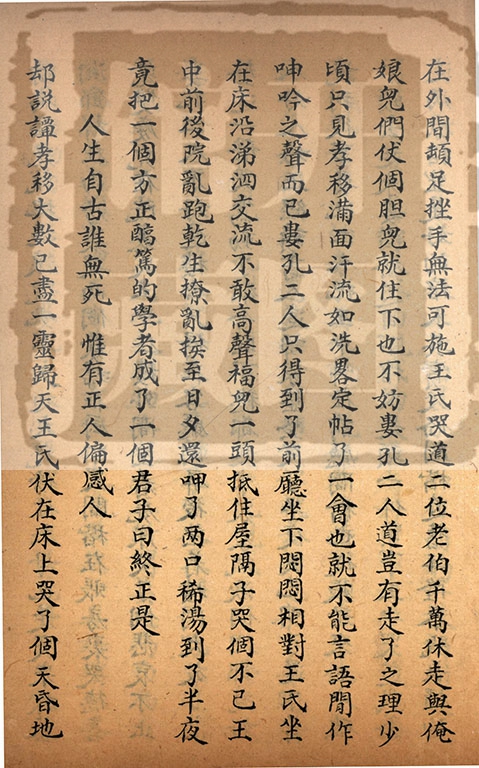 在外間頓足挫手無法可施王氏哭道二位老伯千萬休走與俺
娘兒們仗個胆兒就住下也不妨婁孔二人道豈有走了之理少
頃只見孝移滿面汗流如洗畧定帖了一會也就不能言語間作
呻吟之聲而已婁孔二人只得到了前廳坐下悶悶相對王氏坐
在床沿涕泗交流不敢高聲福兒一頭抵住屋隅子哭個不已王
中前後院亂跑乾生撩亂挨至日夕還呷了两口稀湯到了半夜
竟把一個方正醕篤的學者成了一個君子曰終正是
人生自古誰無死惟有正人偏感人
却說譚孝移大數已盡一靈歸天王氏伏在床上哭了個天昏地